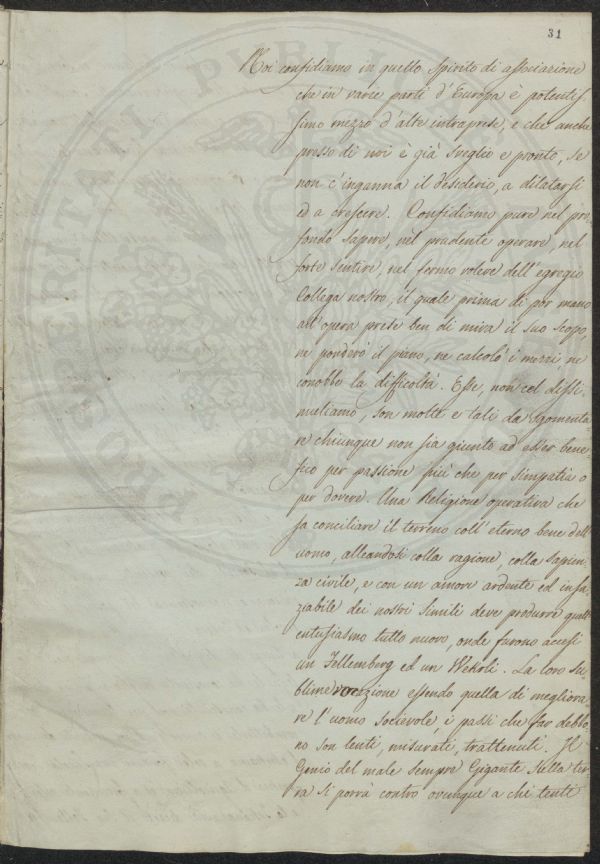 31
Noi confidiamo in quello spirito di associazione
che in varie parti d'Europa è potentis-
simo mezzo d'alte intraprese, e che anche
presso di noi è già sveglio e pronto, se
non c'inganna il desiderio, a dilatarsi
ed a crescere. Confidiamo pure nel pro-
fondo sapere, nel prudente operare, nel
forte sentire, nel fermo volere dell'egregio
Collega nostro, il quale prima di por mano
all'opera prese ben di mira il suo scopo,
ne ponderò il piano, ne calcolò i mezzi, ne
conobbe la difficoltà. Esse, non cel dissi-
muliamo, son molte e tali da sgomenta
re chiunque non sia giunto ad esser bene-
fico per passione più che per simpatia o
per dovere. Una Religione operativa che
sa conciliare il terreno coll'eterno bene dell'
uomo, alleandosi colla ragione, colla sapien-
za civile, e con un amore ardente ed insa-
ziabile dei nostri simili deve produrre quell'
entusiasmo tutto nuovo, onde furono accesi
un Fellemberg ed un Wehrli. La loro su-
blime vocazione essendo quella di migliora-
re l'uomo socievole, i passi che far debbo-
no son lenti, misurati, trattenuti. Il
Genio del male sempre Gigante sulla ter-
ra si porrà contro ovunque a chi tenti
PUBLI